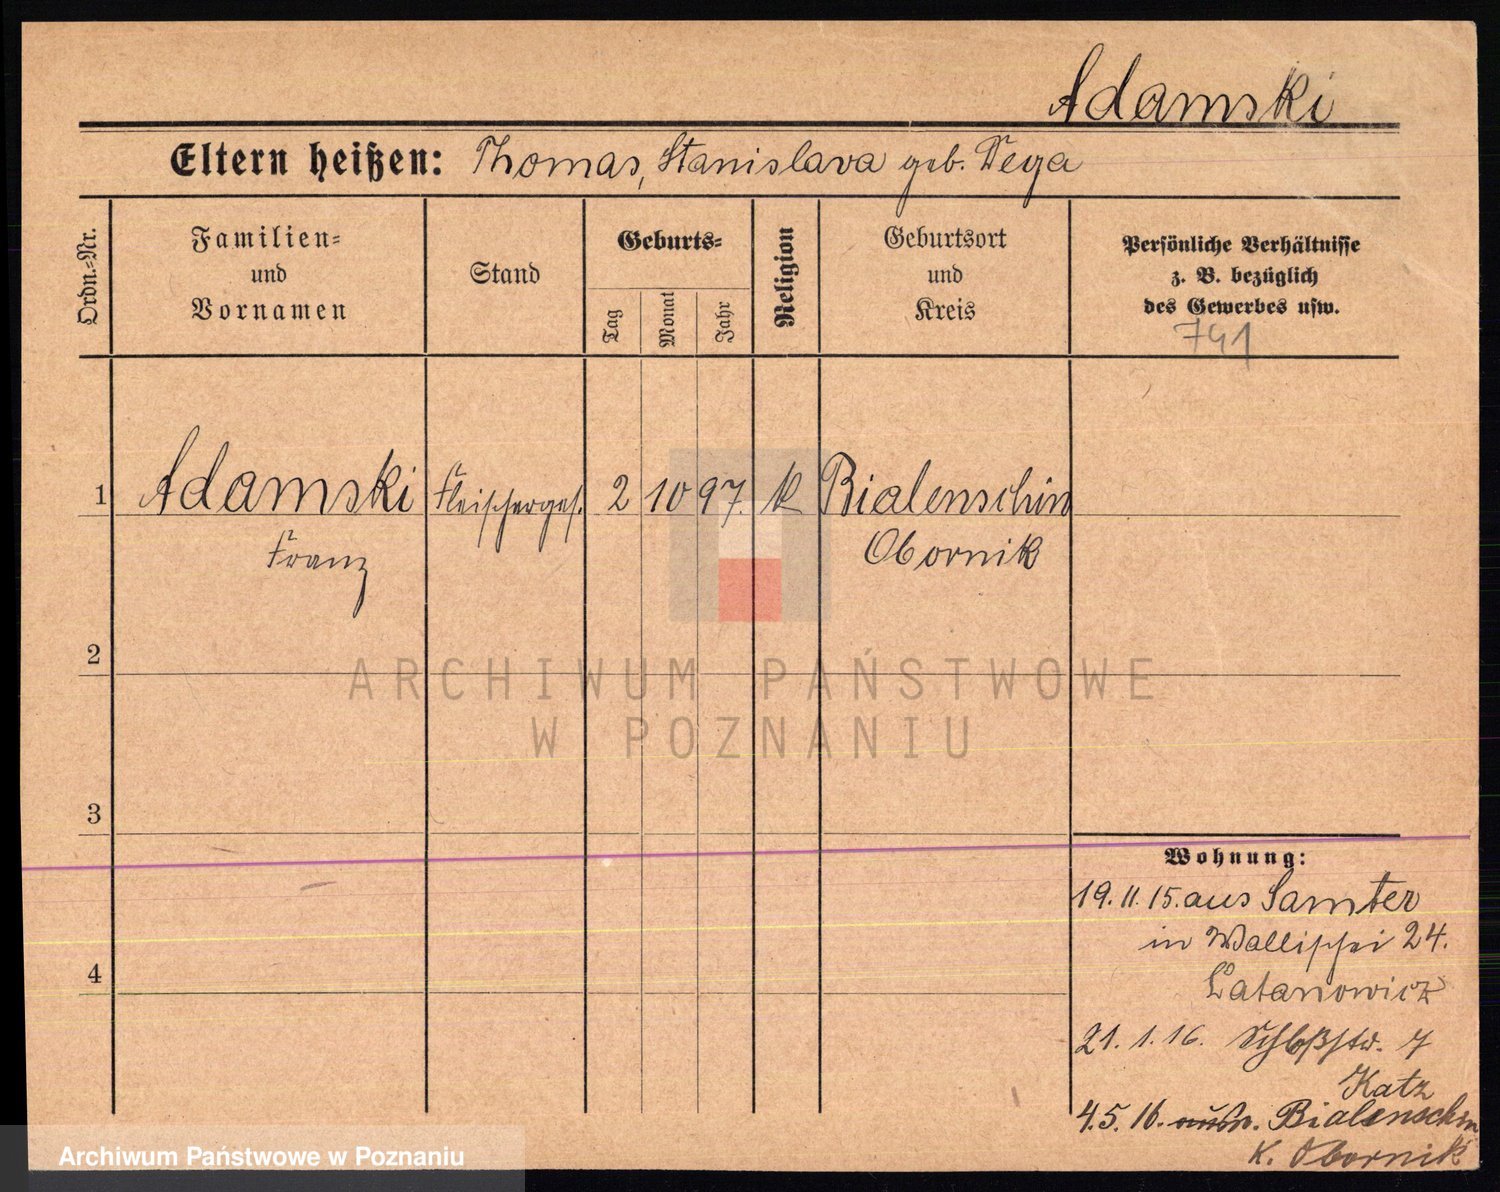 Adamski
Eltern heißen: Thomas, Stanislava geb. Wega
Ordn.-Nr.
Familien-
und
Vornamen
Stand
Geburts-
Tag
Monat
Jahr
Religion
Geburtsort
und
Kreis
Persönliche Verhältnisse
z. B. bezüglich
des Gewerbes usw.
741
1 Adamski Fleischerges. 2 10 97. k Bialenschin
Franz Obornik
2
3
4
Wohnung:
19. 11. 15. aus Samter
in Wallischei 24.
Latanowicz
21. 1. 16. Schloßstr. 7
Katz
4. 5. 16. n. Bialenschin
K. Obornik
ARCHIWUM PAŃSTWOWE
W POZNANIU
Archiwum Państwowe w Poznaniu